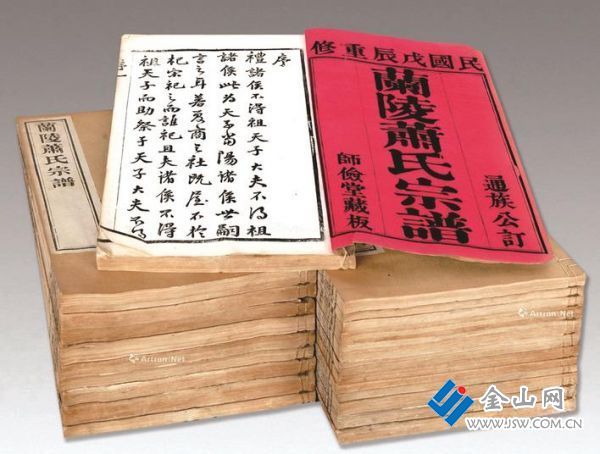 民國戊辰重修
通族公訂
蘭陵蕭氏宗譜
師儉堂藏板
序
禮諸侯不得祖天子大夫不得祖
諸侯此為天子當陽諸侯世嗣
言之耳若夏商之社既屋不於
杞宋祀之而誰祀且夫諸侯不得
祖天子而助祭于天子大夫不得
蘭陵蕭氏宗譜
Artron.Net
Artron.Net
金山网
WWW.JSW.COM.CN